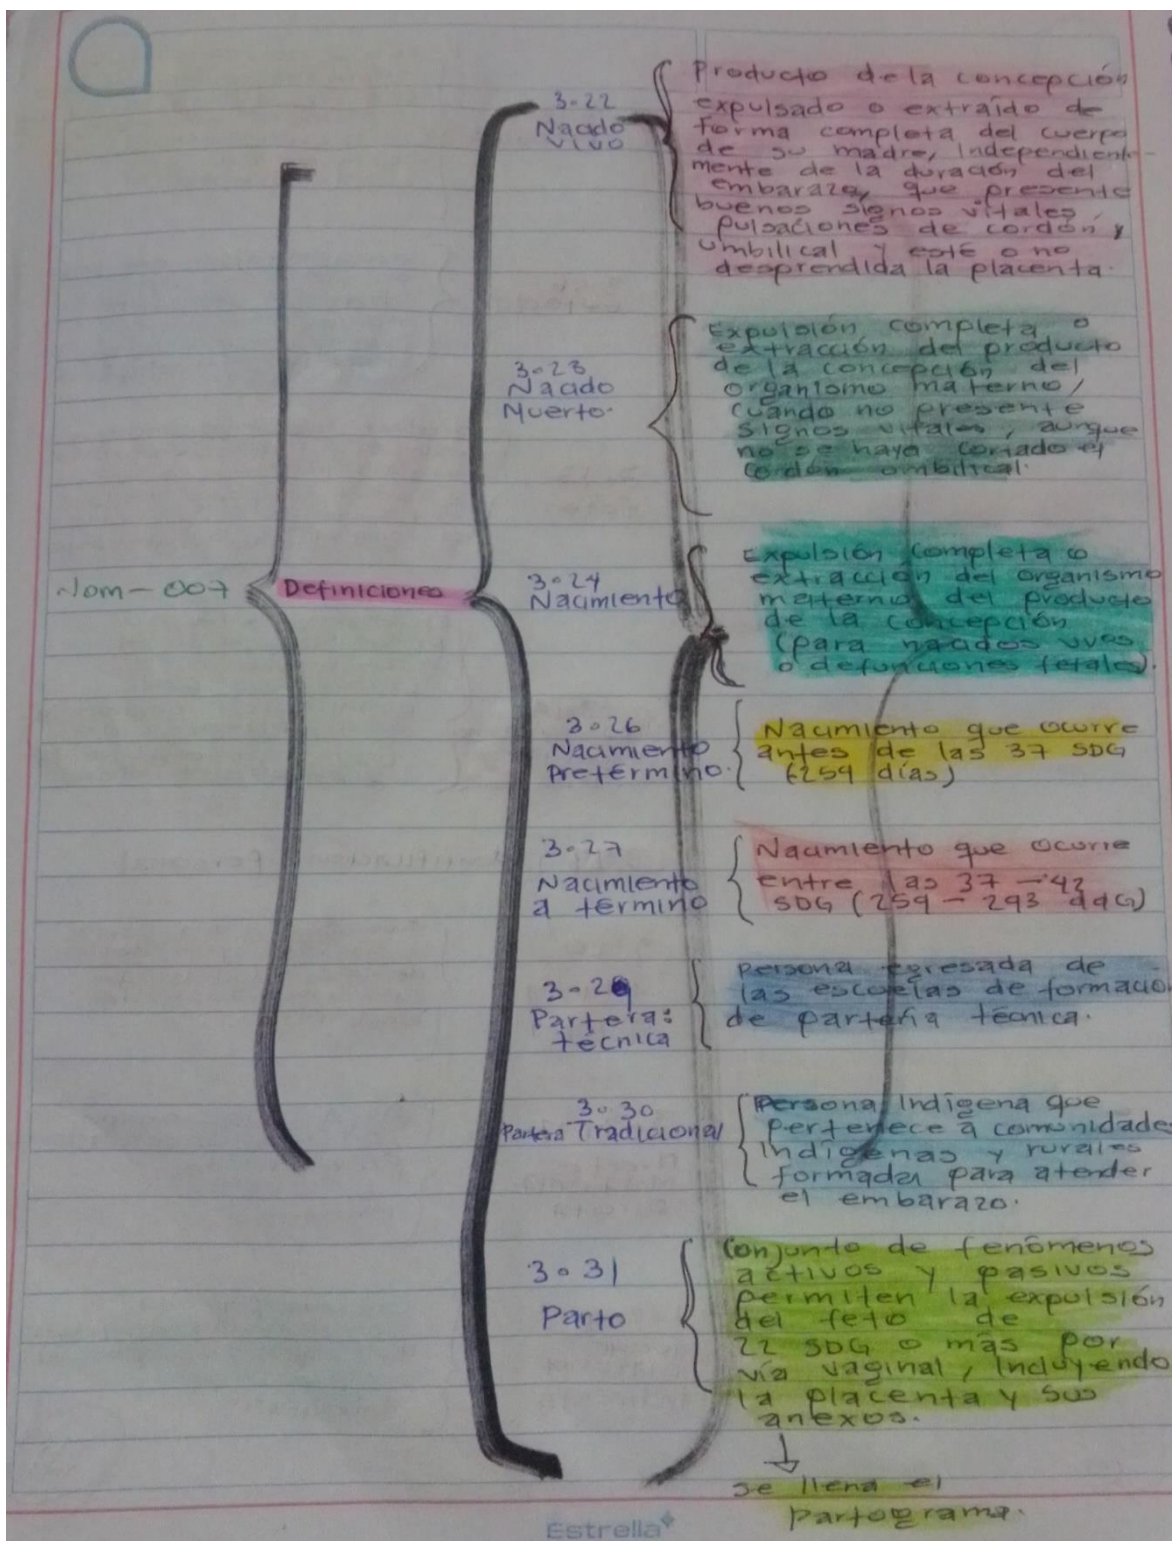 Nom-007
Definiciones
3.22
Nacido
vivo
Producto de la concepción
expulsado o extraído de
forma completa del cuerpo
de su madre, Independiente-
mente de la duración del
embarazo, que presente
buenos signos vitales,
pulsaciones de cordón y
umbilical y esté o no
desprendida la placenta.
3.23
Nacido
Muerto.
Expulsión completa o
extracción del producto
de la concepción del
organismo materno,
cuando no presente
signos vitales, aunque
no se haya cortado el
cordón umbilical.
3.24
Nacimiento
Expulsión completa o
extracción del organismo
materno del producto
de la concepción
(para nacidos vivos
o defunciones fetales).
3.26
Nacimiento
pretérmino.
Nacimiento que ocurre
antes de las 37 SDG
(259 días)
3.27
Nacimiento
a término
Nacimiento que ocurre
entre las 37 - 42
SDG (259 - 293 ddG)
3.29
Partera:
técnica
persona egresada de
las escuelas de formació
de partería técnica.
3.30
Partera Tradicional
Persona Indígena que
pertenece a comunidades
Indígenas y rurales
formada para atender
el embarazo.
3.31
Parto
Conjunto de fenómenos
activos y pasivos
permiten la expulsión
del feto de
22 SDG o más por
vía vaginal, Incluyendo
la placenta y sus
anexos.
↓
se llena el
partograma.
Estrella